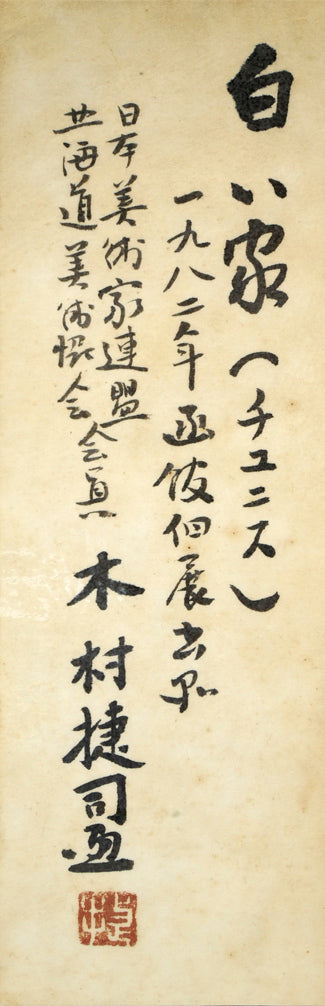 白い家（チユニス）
一九八二年函館個展出品
日本美術家連盟
北海道美術協会会員
木村捷司画